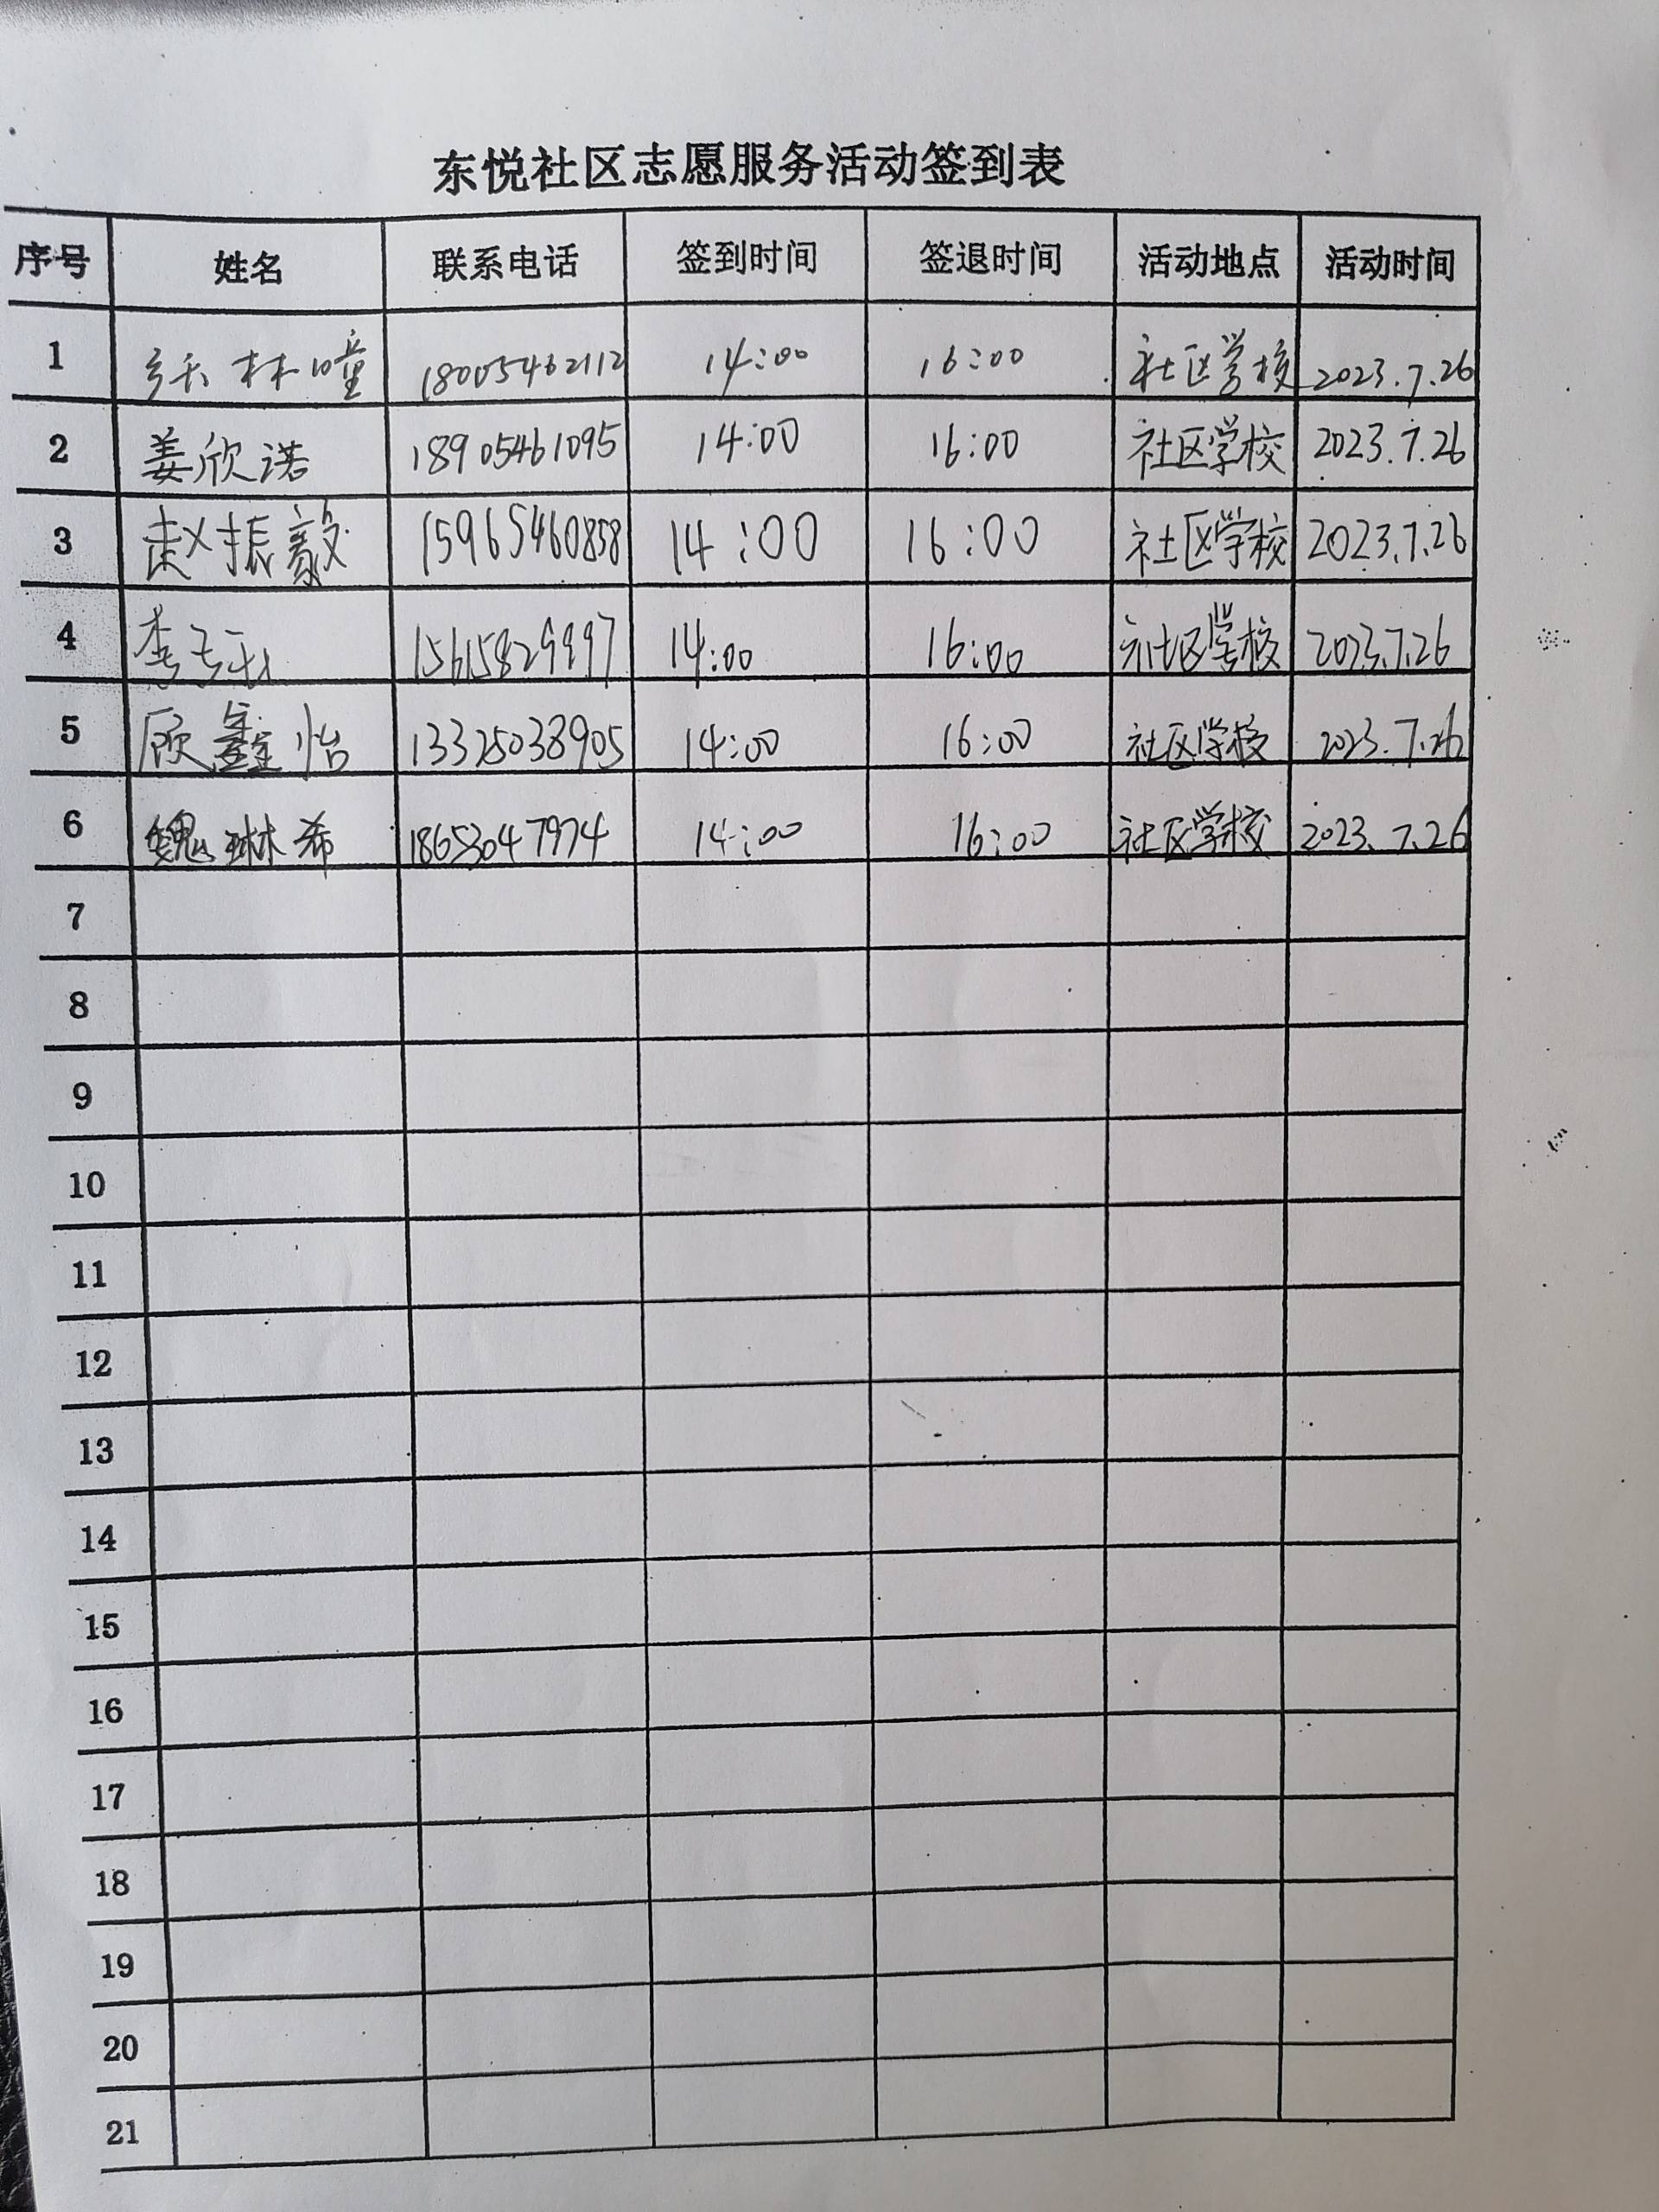 东悦社区志愿服务活动签到表
序号 姓名 联系电话 签到时间 签退时间 活动地点 活动时间
1 林曈 18005462112 14:00 16:00 社区学校 2023.7.26
2 姜欣诺 18905461095 14:00 16:00 社区学校 2023.7.26
3 赵振毅 15965460858 14:00 16:00 社区学校 2023.7.26
4 李 14:00 16:00 社区学校 2023.7.26
5 顾鑫怡 13325038905 14:00 16:00 社区学校 2023.7.26
6 魏琳希 18653047974 14:00 16:00 社区学校 2023.7.26
7
8
9
10
11
12
13
14
15
16
17
18
19
20
21